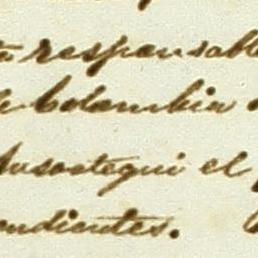 responsable
Colombia
Ansoategui el
endientes.